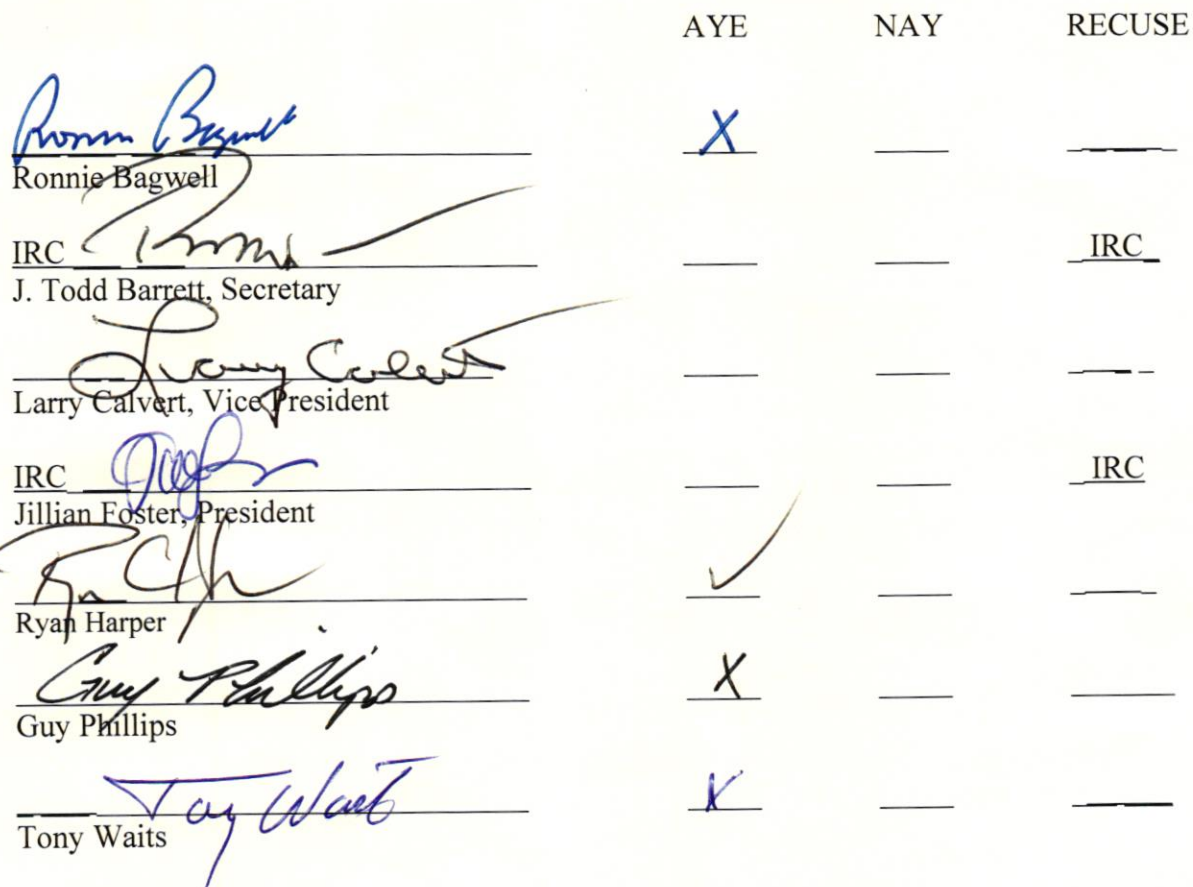 AYE NAY RECUSE
Ronnie Bagwell X
Ronnie Bagwell
IRC IRC
J. Todd Barrett, Secretary
Larry Calvert
Larry Calvert, Vice President
IRC IRC
Jillian Foster, President
✓
Ryan Harper
Guy Phillips X
Guy Phillips
Tony Waits X
Tony Waits